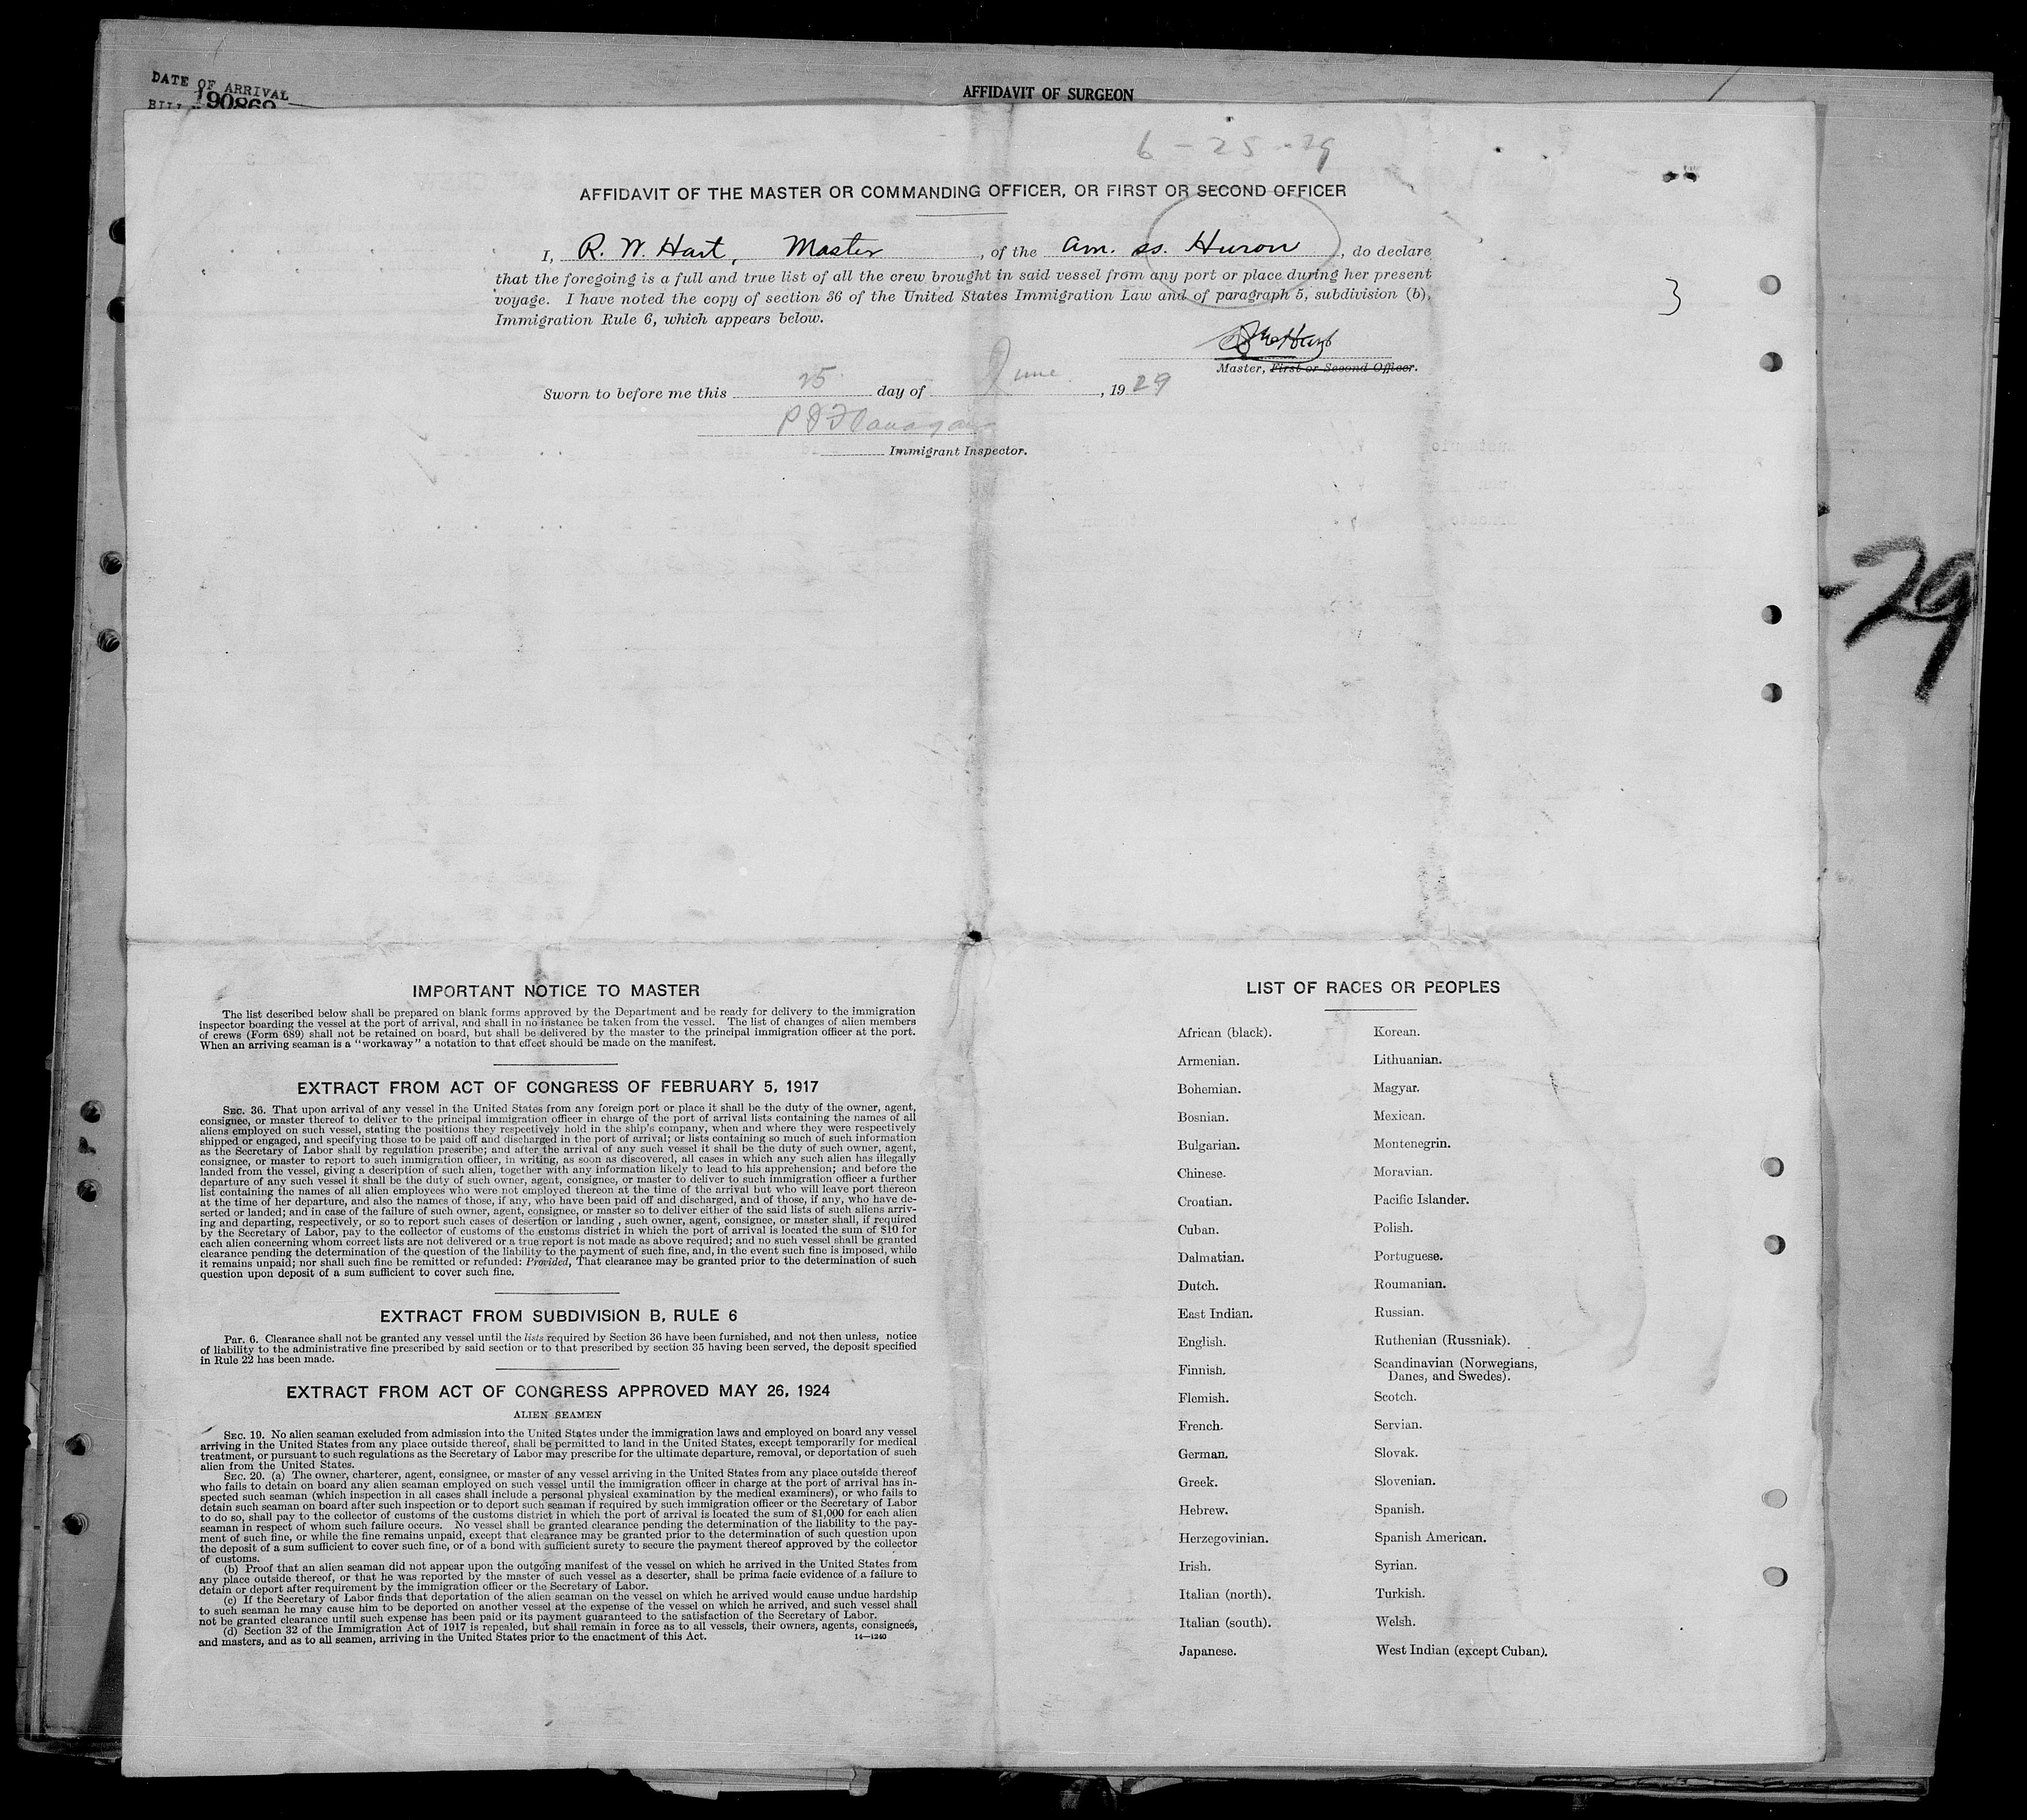 DATE OF ARRIVAL
190869
AFFIDAVIT OF SURGEON
6 - 25 - 29
AFFIDAVIT OF THE MASTER OR COMMANDING OFFICER, OR FIRST OR SECOND OFFICER
I, R. W. Hart, Master, of the Am. ss. Huron, do declare
that the foregoing is a full and true list of all the crew brought in said vessel from any port or place during her present
voyage. I have noted the copy of section 36 of the United States Immigration Law and of paragraph 5, subdivision (b),
Immigration Rule 6, which appears below.
3
Master, First or Second Officer.
Sworn to before me this 25 day of June, 1929
Immigrant Inspector.
-29
IMPORTANT NOTICE TO MASTER
The list described below shall be prepared on blank forms approved by the Department and be ready for delivery to the immigration
inspector boarding the vessel at the port of arrival, and shall in no instance be taken from the vessel. The list of changes of alien members
of crews (Form 689) shall not be retained on board, but shall be delivered by the master to the principal immigration officer at the port.
When an arriving seaman is a "workaway" a notation to that effect should be made on the manifest.
EXTRACT FROM ACT OF CONGRESS OF FEBRUARY 5, 1917
SEC. 36. That upon arrival of any vessel in the United States from any foreign port or place it shall be the duty of the owner, agent,
consignee, or master thereof to deliver to the principal immigration officer in charge of the port of arrival lists containing the names of all
aliens employed on such vessel, stating the positions they respectively hold in the ship's company, when and where they were respectively
shipped or engaged, and specifying those to be paid off and discharged in the port of arrival; or lists containing so much of such information
as the Secretary of Labor shall by regulation prescribe; and after the arrival of any such vessel it shall be the duty of such owner, agent,
consignee, or master to report to such immigration officer, in writing, as soon as discovered, all cases in which any such alien has illegally
landed from the vessel, giving a description of such alien, together with any information likely to lead to his apprehension; and before the
departure of any such vessel it shall be the duty of such owner, agent, consignee, or master to deliver to such immigration officer a further
list containing the names of all alien employees who were not employed thereon at the time of the arrival but who will leave port thereon
at the time of her departure, and also the names of those, if any, who have been paid off and discharged, and of those, if any, who have de-
serted or landed; and in case of the failure of such owner, agent, consignee, or master so to deliver either of the said lists of such aliens arriv-
ing and departing, respectively, or so to report such cases of desertion or landing , such owner, agent, consignee, or master shall, if required
by the Secretary of Labor, pay to the collector of customs of the customs district in which the port of arrival is located the sum of $10 for
each alien concerning whom correct lists are not delivered or a true report is not made as above required; and no such vessel shall be granted
clearance pending the determination of the question of the liability to the payment of such fine, and, in the event such fine is imposed, while
it remains unpaid; nor shall such fine be remitted or refunded: Provided, That clearance may be granted prior to the determination of such
question upon deposit of a sum sufficient to cover such fine.
EXTRACT FROM SUBDIVISION B, RULE 6
Par. 6. Clearance shall not be granted any vessel until the lists required by Section 36 have been furnished, and not then unless, notice
of liability to the administrative fine prescribed by said section or to that prescribed by section 35 having been served, the deposit specified
in Rule 22 has been made.
EXTRACT FROM ACT OF CONGRESS APPROVED MAY 26, 1924
ALIEN SEAMEN
SEC. 19. No alien seaman excluded from admission into the United States under the immigration laws and employed on board any vessel
arriving in the United States from any place outside thereof, shall be permitted to land in the United States, except temporarily for medical
treatment, or pursuant to such regulations as the Secretary of Labor may prescribe for the ultimate departure, removal, or deportation of such
alien from the United States.
SEC. 20. (a) The owner, charterer, agent, consignee, or master of any vessel arriving in the United States from any place outside thereof
who fails to detain on board any alien seaman employed on such vessel until the immigration officer in charge at the port of arrival has in-
spected such seaman (which inspection in all cases shall include a personal physical examination by the medical examiners), or who fails to
detain such seaman on board after such inspection or to deport such seaman if required by such immigration officer or the Secretary of Labor
to do so, shall pay to the collector of customs of the customs district in which the port of arrival is located the sum of $1,000 for each alien
seaman in respect of whom such failure occurs. No vessel shall be granted clearance pending the determination of the liability to the pay-
ment of such fine, or while the fine remains unpaid, except that clearance may be granted prior to the determination of such question upon
the deposit of a sum sufficient to cover such fine, or of a bond with sufficient surety to secure the payment thereof approved by the collector
of customs.
(b) Proof that an alien seaman did not appear upon the outgoing manifest of the vessel on which he arrived in the United States from
any place outside thereof, or that he was reported by the master of such vessel as a deserter, shall be prima facie evidence of a failure to
detain or deport after requirement by the immigration officer or the Secretary of Labor.
(c) If the Secretary of Labor finds that deportation of the alien seaman on the vessel on which he arrived would cause undue hardship
to such seaman he may cause him to be deported on another vessel at the expense of the vessel on which he arrived, and such vessel shall
not be granted clearance until such expense has been paid or its payment guaranteed to the satisfaction of the Secretary of Labor.
(d) Section 32 of the Immigration Act of 1917 is repealed, but shall remain in force as to all vessels, their owners, agents, consignees,
and masters, and as to all seamen, arriving in the United States prior to the enactment of this Act.
14—1240
LIST OF RACES OR PEOPLES
African (black).
Armenian.
Bohemian.
Bosnian.
Bulgarian.
Chinese.
Croatian.
Cuban.
Dalmatian.
Dutch.
East Indian.
English.
Finnish.
Flemish.
French.
German.
Greek.
Hebrew.
Herzegovinian.
Irish.
Italian (north).
Italian (south).
Japanese.
Korean.
Lithuanian.
Magyar.
Mexican.
Montenegrin.
Moravian.
Pacific Islander.
Polish.
Portuguese.
Roumanian.
Russian.
Ruthenian (Russniak).
Scandinavian (Norwegians,
Danes, and Swedes).
Scotch.
Servian.
Slovak.
Slovenian.
Spanish.
Spanish American.
Syrian.
Turkish.
Welsh.
West Indian (except Cuban).